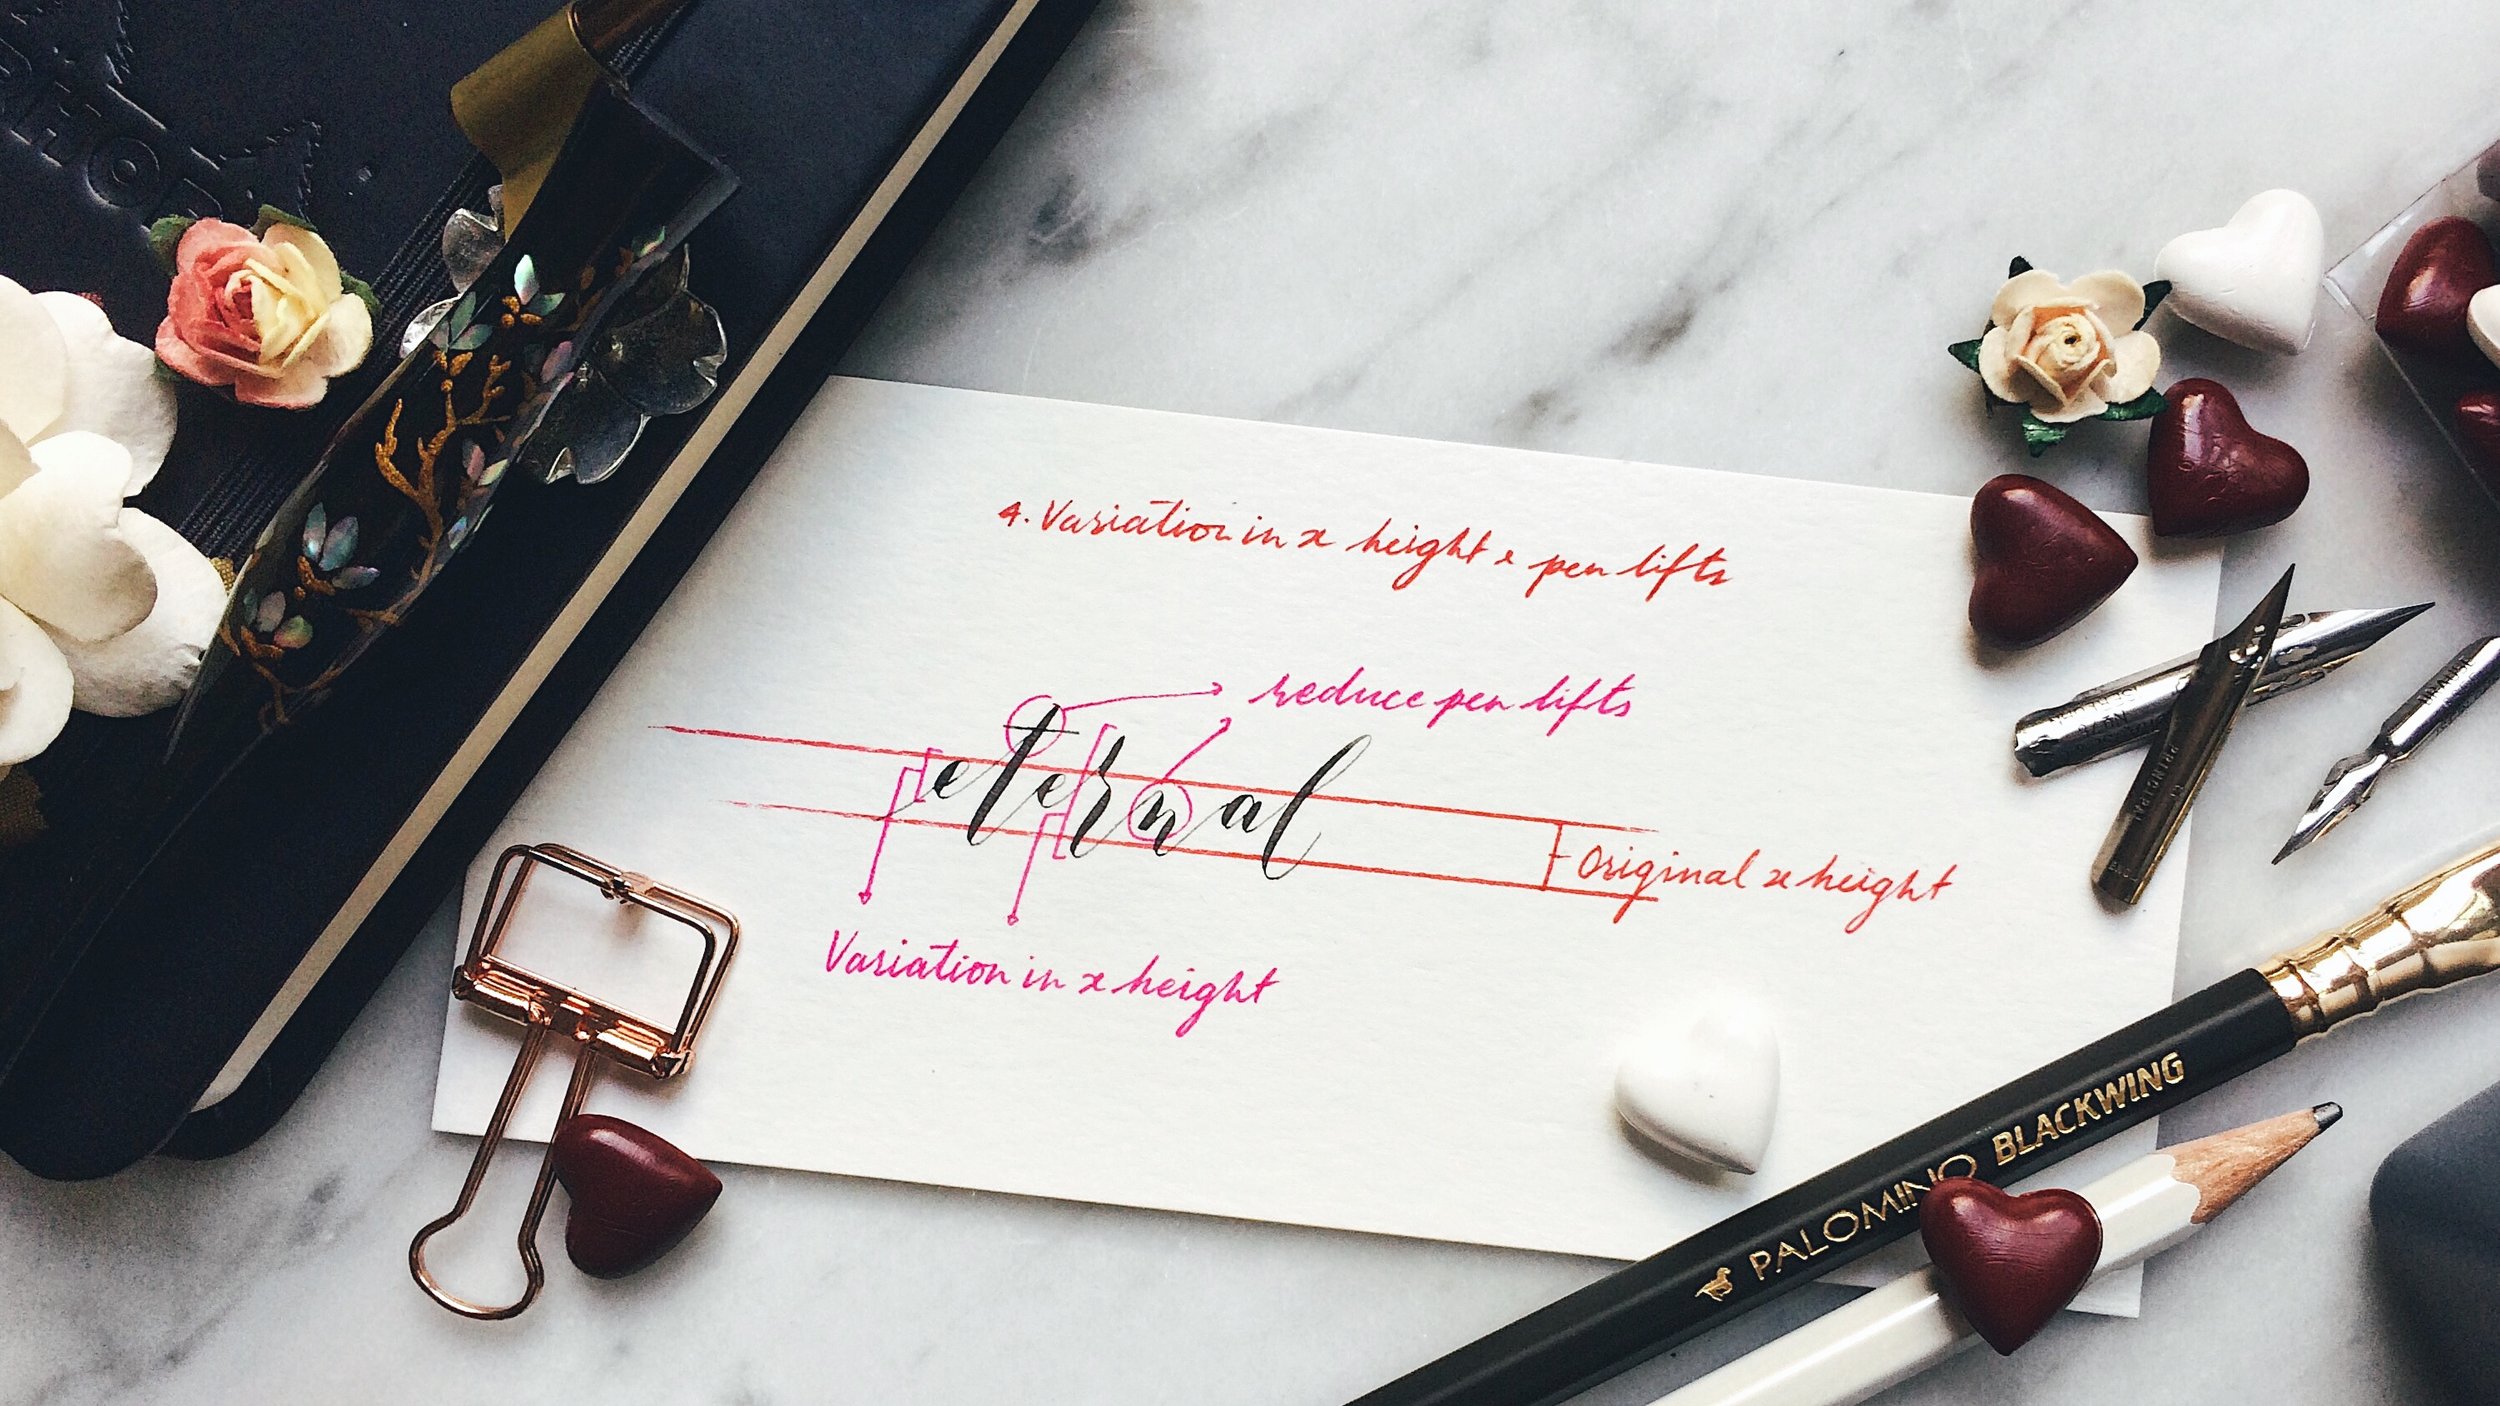 4. Variation in x height & pen lifts
reduce pen lifts
eternal
Original x height
Variation in x height
PALOMINO BLACKWING